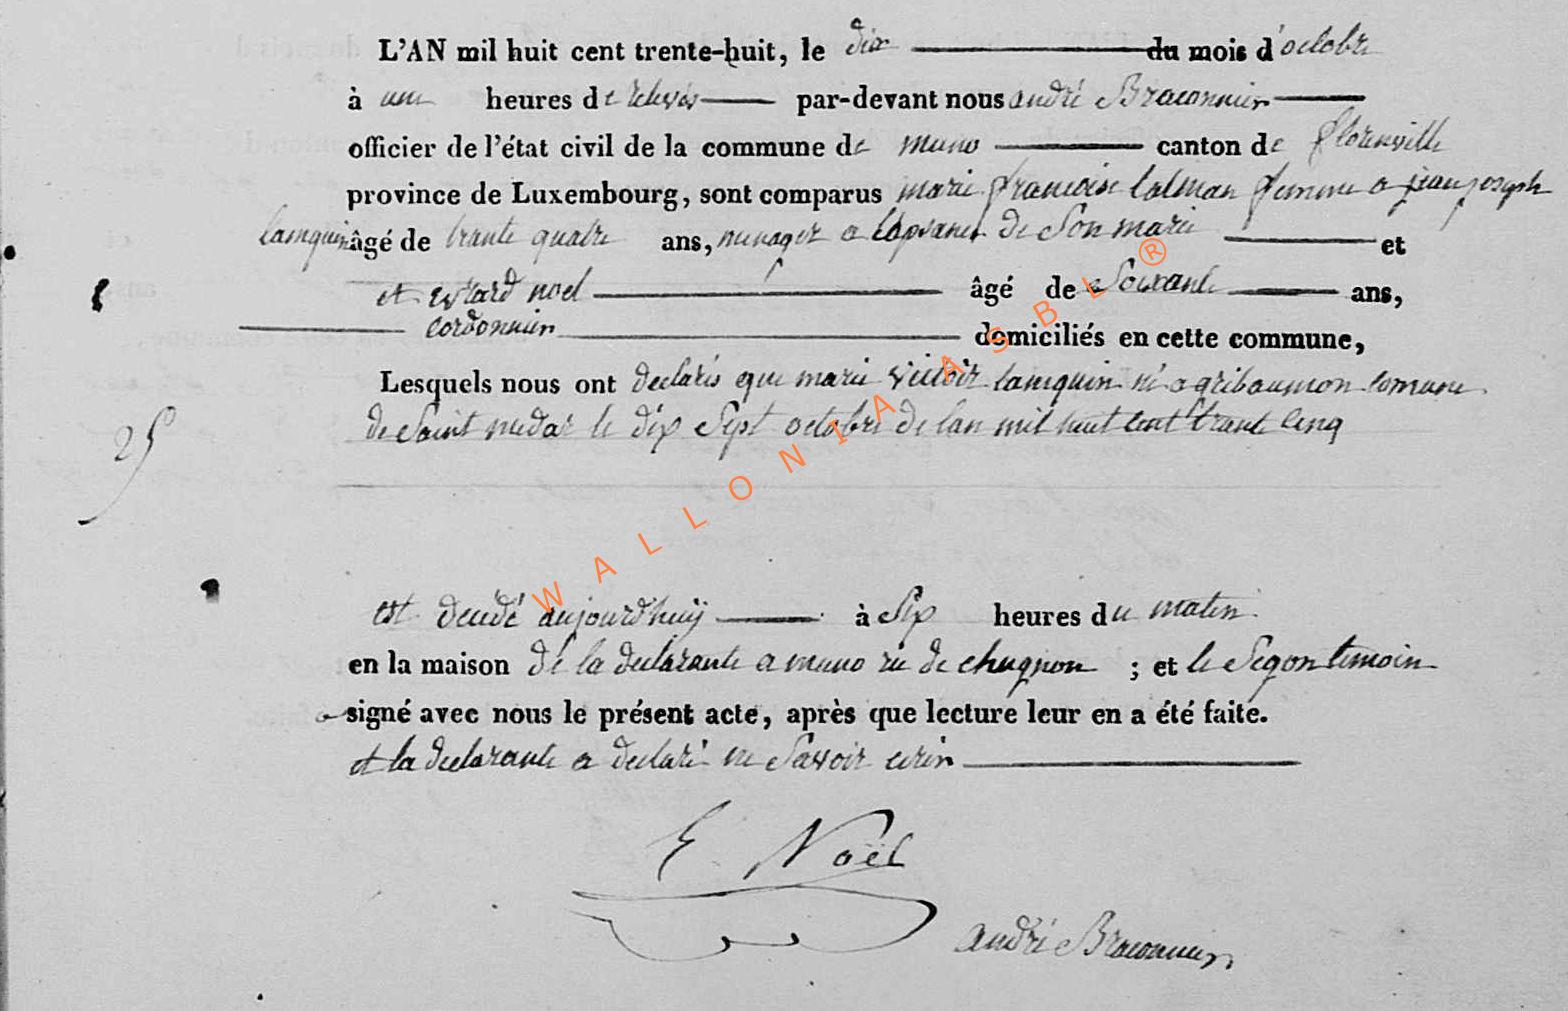 L'AN mil huit cent trente-huit, le dix du mois d'octobre
à une heures de relevés par-devant nous andré Braconnier
officier de l'état civil de la commune de muno canton de florenville
province de Luxembourg, sont comparus marie francoise lalman femme a jean joseph
lamquin âgé de trante quatre ans, menager a l'apsance de Son marie et
et evrard noel âgé de Soixante ans,
cordonnier domiciliés en cette commune,
Lesquels nous ont declarés que marie victoir lamquin né a gribaumon comune
de Saint medar le dix Sept octobre de lan mil huit cent trante cinq
25
est decédé aujourd'huÿ à Six heures du matin
en la maison de la declarante a muno rue de chugnon ; et le Segon temoin
a signé avec nous le présent acte, après que lecture leur en a été faite.
et la declarante a declaré ne Savoir ecrire
E. Noël
andré Braconnier
WALLONIA ASBL ®